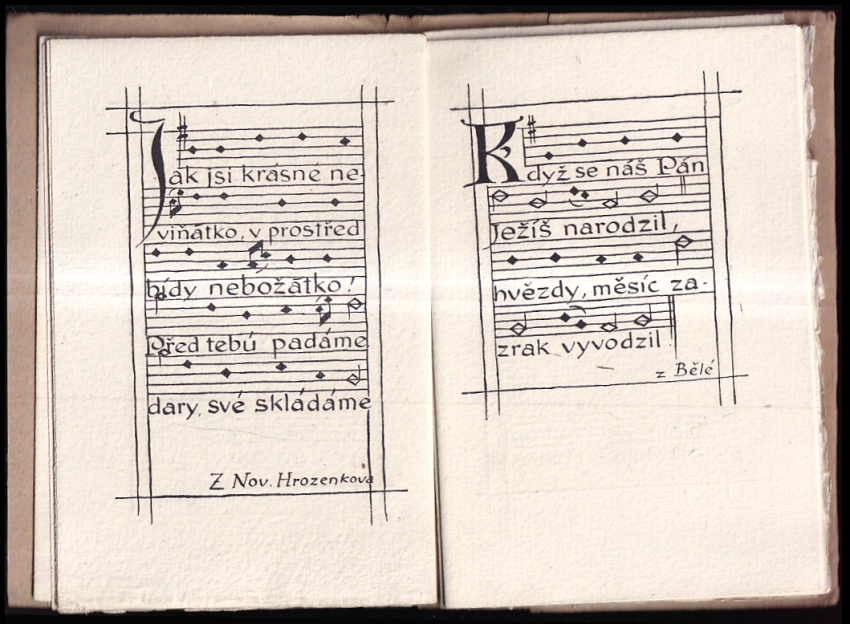 Jak jsi krásné ne-
viňátko, v prostřed
bídy nebožátko!
Před tebú padáme
dary, své skládáme
Z Nov. Hrozenkova
Když se náš Pán
Ježíš narodzil,
hvězdy, měsíc za-
zrak vyvodzil
z Bělé